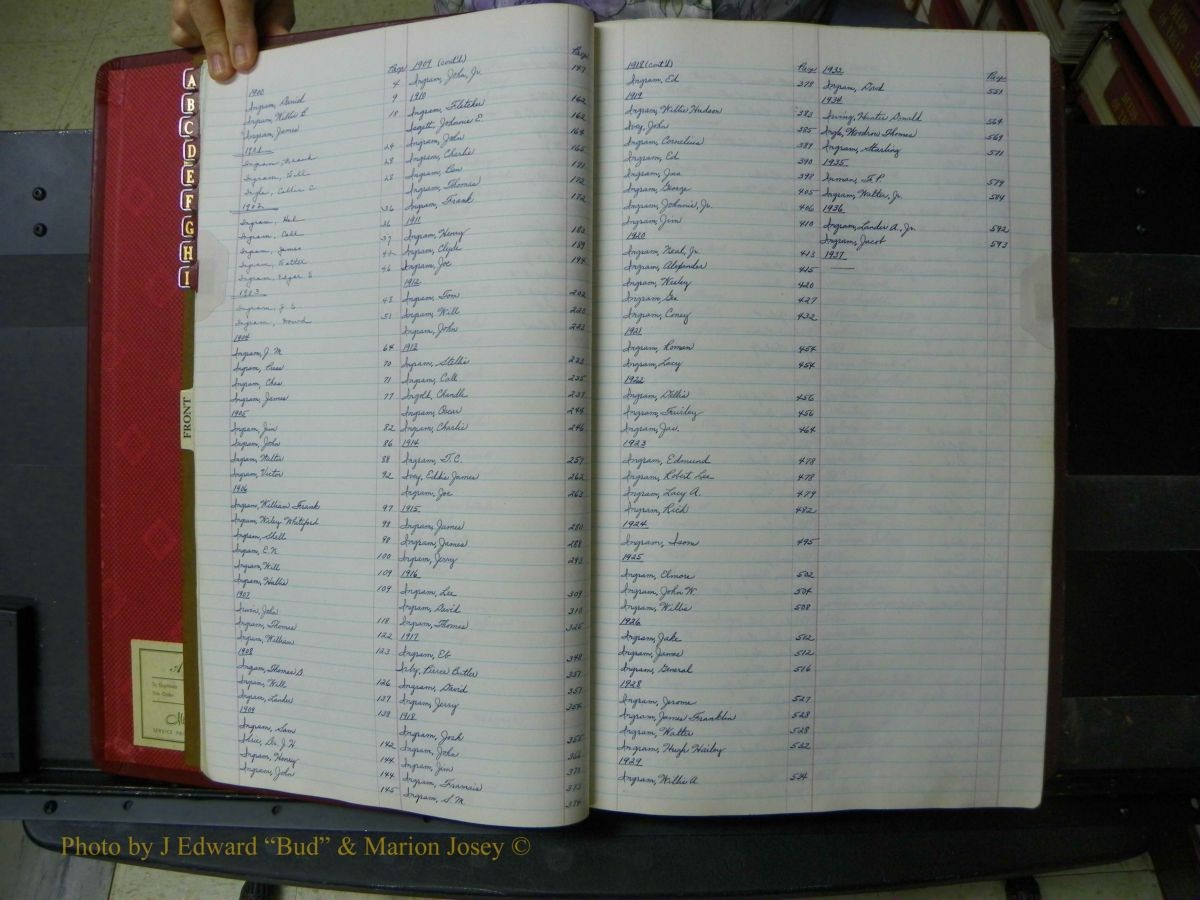 A
B
C
D
E
F
G
H
I
FRONT
SERVICE
Page
1900
Ingram, David 4
Ingram, Willie B. 9
Ingram, James 18
1901
Ingram, Frank 24
Ingram, Will 28
Ingle, C. 28
1902
Ingram, Hal 36
Ingram, Call 36
Ingram, James 37
Ingram, 42
Ingram, Edgar S. 46
1903
Ingram, J. S. 48
Ingram, 51
1904
Ingram, J. M. 64
Ingram, Cass 70
Ingram, Chas 71
Ingram, James 77
1905
Ingram, Jim 82
Ingram, John 86
Ingram, Walter 88
Ingram, Victor 92
1906
Ingram, William Frank 97
Ingram, Wiley Whitford 98
Ingram, Shell 98
Ingram, E. N. 100
Ingram, Will 109
Ingram, Hallie 109
1907
Irwin, John
Ingram, Thomas 118
Ingram, William 122
1908 123
Ingram, Thomas S.
Ingram, Will 126
Ingram, Lander 137
1909 139
Ingram, Sam
Dr. J. W. 142
Ingram, Henry 144
Ingram, John 144
145
Page
1909 (cont'd)
Ingram, John, Jr. 147
1910
Ingram, Fletcher 162
Johnnie E. 162
Ingram, John 164
Ingram, Charlie 165
Ingram, Ben 171
Ingram, Thomas 172
Ingram, Frank 172
1911
Ingram, Henry 182
Ingram, Clyde 189
Ingram, Joe 194
1912
Ingram, Tom 202
Ingram, Will 220
Ingram, John 223
1913
Ingram, 232
Ingram, Call 235
Ingold, Chandle 237
Ingram, Oscar 244
Ingram, Charlie 246
1914
Ingram, T. C. 257
Ivey, Eddie James 262
Ingram, Joe 263
1915
Ingram, James 280
Ingram, James 288
Ingram, Jerry 293
1916
Ingram, Lee 309
Ingram, David 310
Ingram, Thomas 325
1917
Ingram, Eb 348
Irby, Pierce Butler 357
Ingram, David 357
Ingram, Jerry 354
1918
Ingram, Josh 355
Ingram, John 366
Ingram, Jim 371
Ingram, Francis 373
Ingram, S. M. 374
Page
1918 (cont'd)
Ingram, Ed 378
1919
Ingram, Willie Hudson 383
Ivey, John 385
Ingram, Cornelius 389
Ingram, Ed 390
Ingram, Jas 398
Ingram, George 405
Ingram, Johnnie, Jr. 406
Ingram, Jim 410
1920
Ingram, Neal, Jr. 413
Ingram, Alexander 415
Ingram, Wesley 420
Ingram, Geo 427
Ingram, Coney 432
1921
Ingram, Roman 454
Ingram, Lacy 454
1922
Ingram, Dellis 456
Ingram, Fairley 456
Ingram, Jas. 464
1923
Ingram, Edmund 478
Ingram, Robert Lee 478
Ingram, Lacy A. 479
Ingram, Rich 482
1924
Ingram, Isom 495
1925
Ingram, Elmore 502
Ingram, John W. 504
Ingram, Willie 508
1926
Ingram, Jake 512
Ingram, James 512
Ingram, General 516
1928
Ingram, Jerome 527
Ingram, James Franklin 528
Ingram, Walter 528
Ingram, Hugh Haley 532
1929
Ingram, Willie A 534
Page
1933
Ingram, David 551
1934
Irving, Hunter Donald 564
Ingle, Woodrow Thomas 569
Ingram, Starling 571
1935
Inman, F. P. 579
Ingram, Walter, Jr. 584
1936
Ingram, Lander A., Jr. 592
Ingram, Jacob 593
1937
Photo by J Edward “Bud” & Marion Josey ©